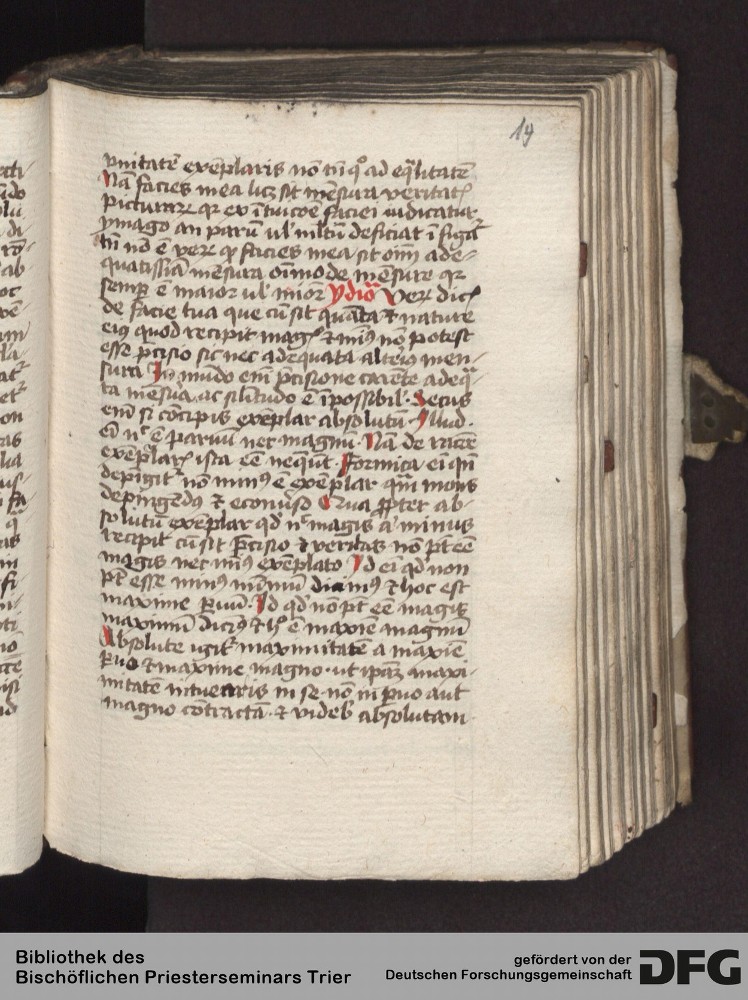 14
vnitatē exēplaris nō tñ qͦ ad eq̄litatē
Nā facies mea lic͛ sit mēsura veritatꝭ
picturaꝝ qꝛ ex ītuicōe faciei iudicatur
ymago an parū ul' m̄ltū deficiat ī figa
tñ nō ē veꝝ ꝙ facies mea sit oīm ade-
quatissīa mēsura oīmode mēsure qꝛ
semp̄ ē maior ul' mīor ydiōa Veꝝ dicꝭ
de facie tua que cū sit quāta ⁊ nature
eius quod recipit magꝭ ⁊ mīꝰ nō potest
esse p̄cisio sic nec adequata alteriꝰ men-
sura In mūdo em̄ p̄cisione carēte adeq̄-
ta mēsu̾a ac sīlitudo ē īpossibil' Secus
em̄ si cōcipis exēplar absolutū Illud
eī nͨ ē paruū nec magnū Nā de racōe
exēplarꝭ ista eē neq̄ūt Formica eī qn̄
depīgit͛ nō minꝰ ē exēplar qm̄ mons
depingēdus ⁊ econuīso Qua ꝓpter ab-
solutū exēplar qd nͨ magis a' minus
recipit cū sit p̄cisio ⁊ veritas nō pt̄ eē
magis nec mīꝰ exēplato Id eī qd non
pt̄ esse minꝰ mīmū dicimꝰ ⁊ hoc est
maxime ꝑuū Id qd nō pt̄ eē magis
maximū dicꝰ ⁊ hͨ ē maxīe magnū
Absolue igit͛ maximitatē a maxīe
ꝑuo ⁊ maxime magno ut ip̄aꝫ maxi-
mitatē intuearis in se nō in ꝑuo aut
magno cōtractā ⁊ videb' absolutam
Bibliothek des
Bischöflichen Priesterseminars Trier
gefördert von der
Deutschen Forschungsgemeinschaft
DFG